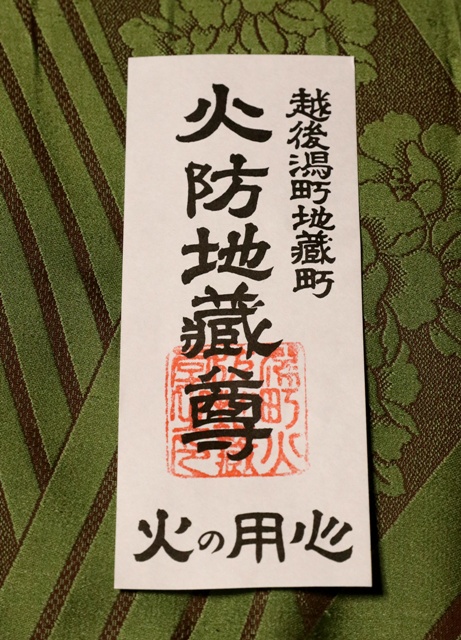 越後潟町地蔵町
火防地蔵尊
火の用心